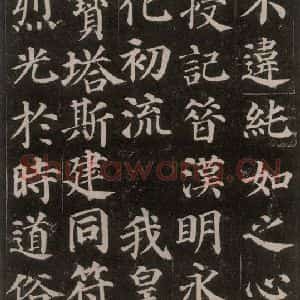 不違純如之心
授記昔漢明永
化初流 我皇
寶塔斯建同符
烈光於時道俗
Shufawang.CN